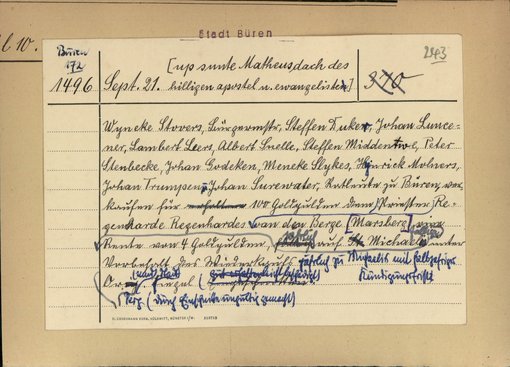 Stadt Büren
Büren
172
1496
[up sunte Matheusdach des
Sept. 21. hilligen apostel u. ewangelisten]
243
370
Wyneke Stovers, Bürgermstr, Steffen Duker, Johan Luncener,
Lambert Leers, Albert Snelle, Steffen Middentwe, Peter
Stenbecke, Johan Godeken, Meneke Slykes, Hinrick Molners,
Johan Trumpen u. Johan Surewater, Ratleute zu Büren, verkaufen
für erhaltene 100 Goldgulden dem Priester Regenharde
Regenhardes van dem Berge [Marsberg] eine
Rente von 4 Goldgulden, jährlich auf Michaelis unter
Vorbehalt des Wiederkaufs jährlich zu Michaelis mit halbjähriger
Kündigungsfrist
Org. Siegel
Perg. (durch Einschnitte ungültig gemacht)